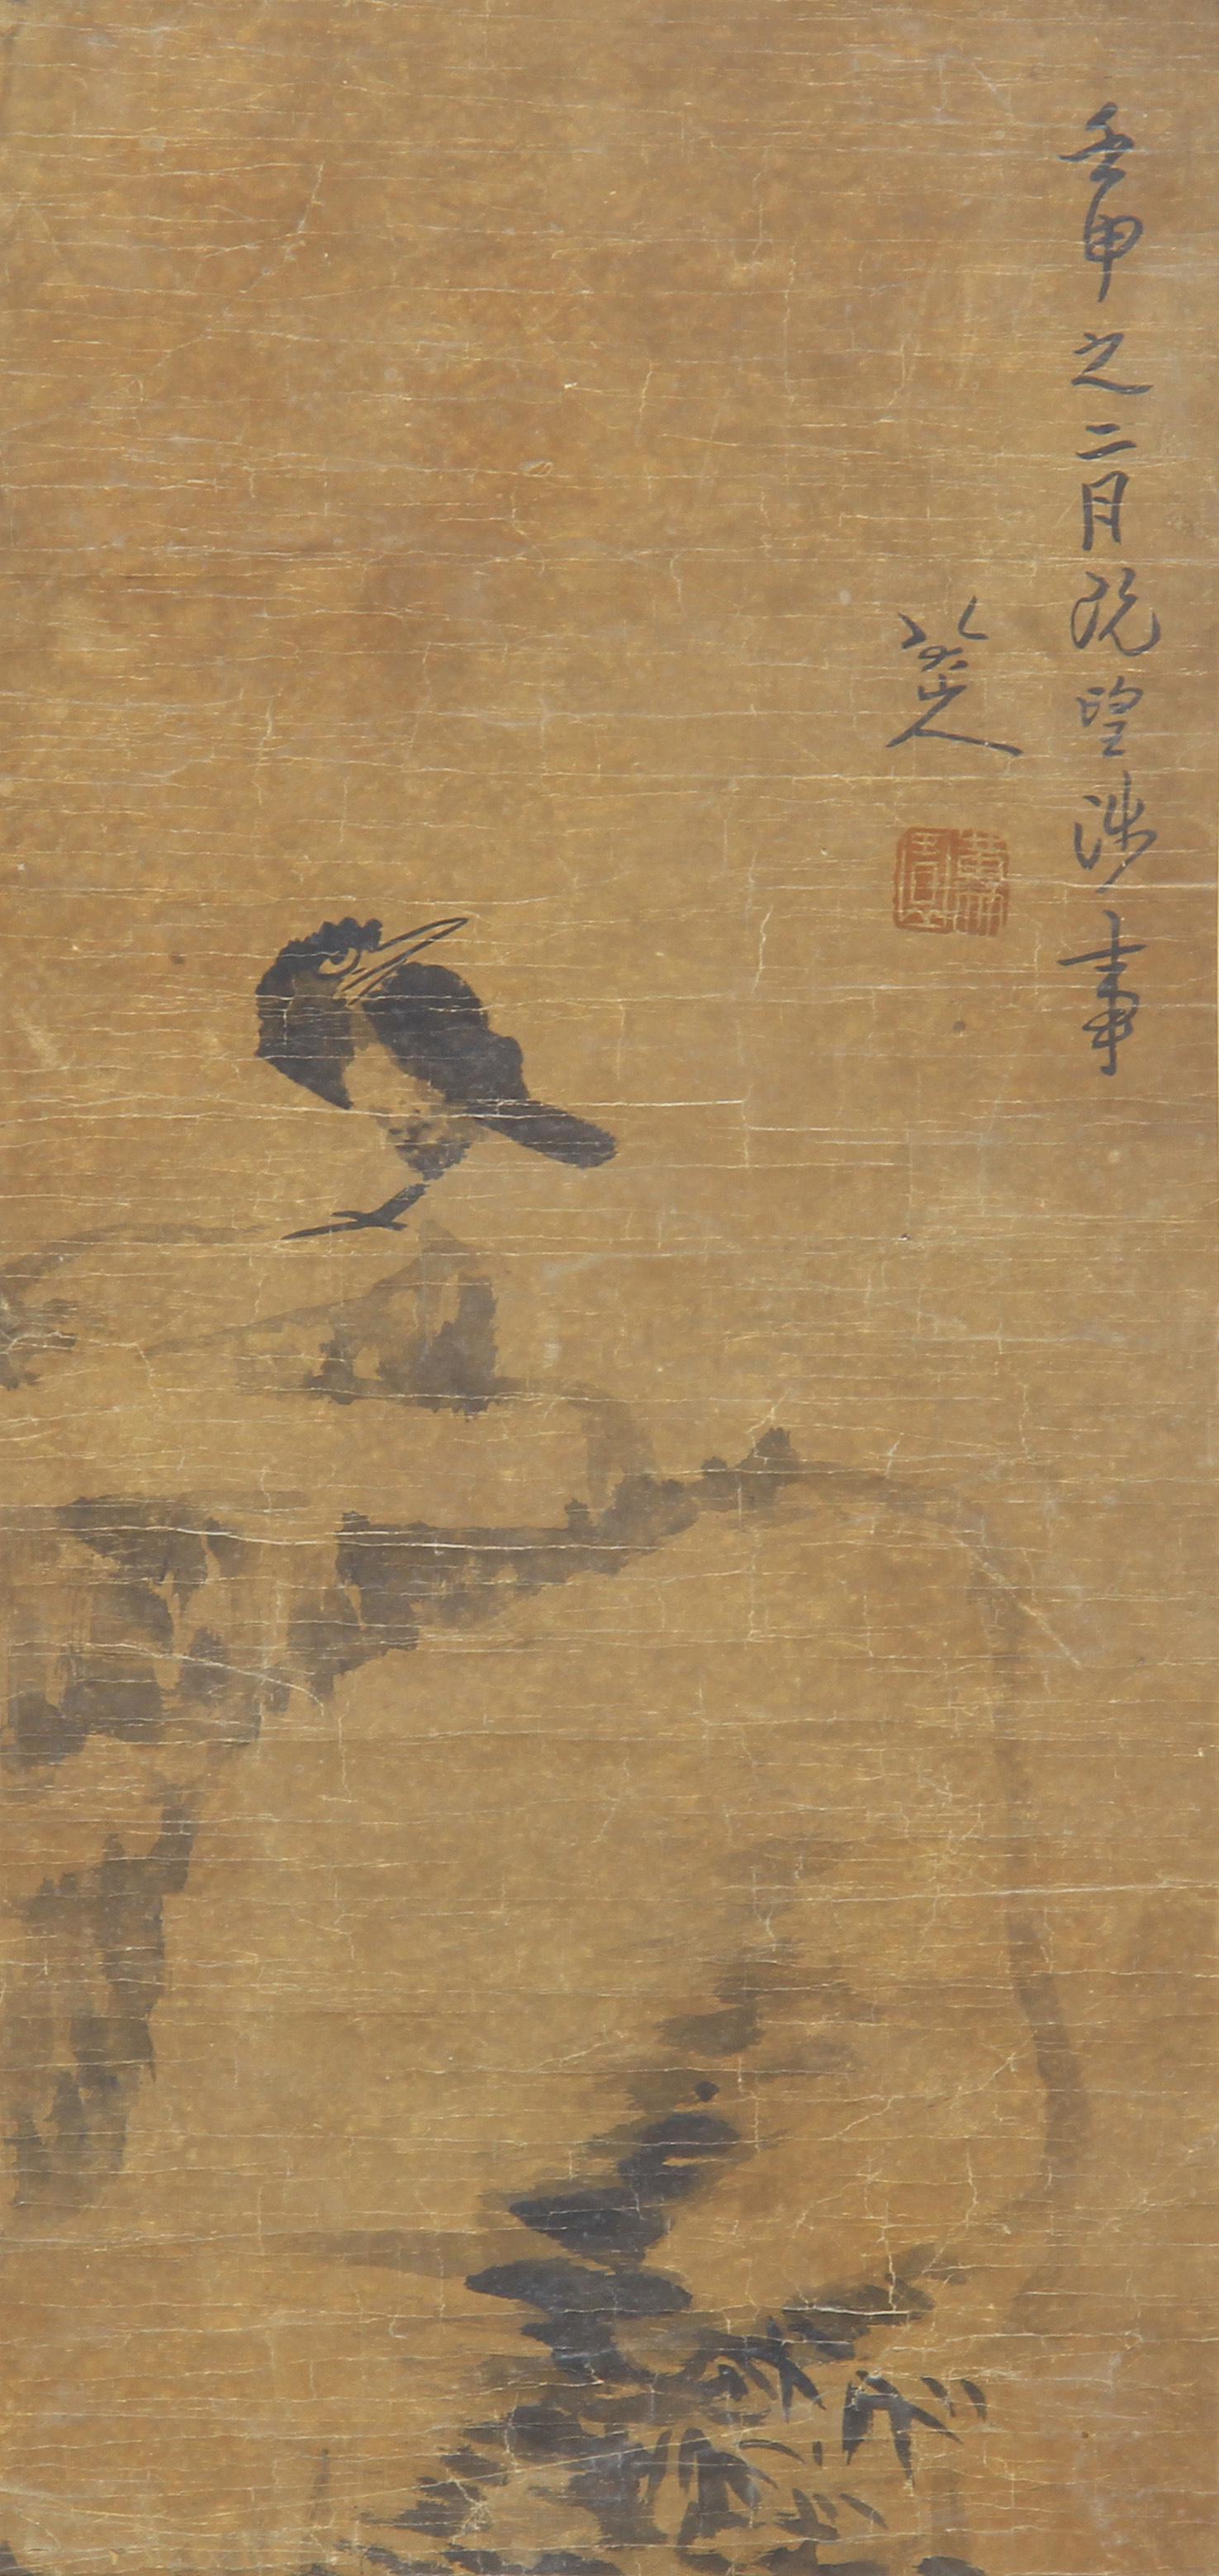 壬申之二月既望涉事
八大山人